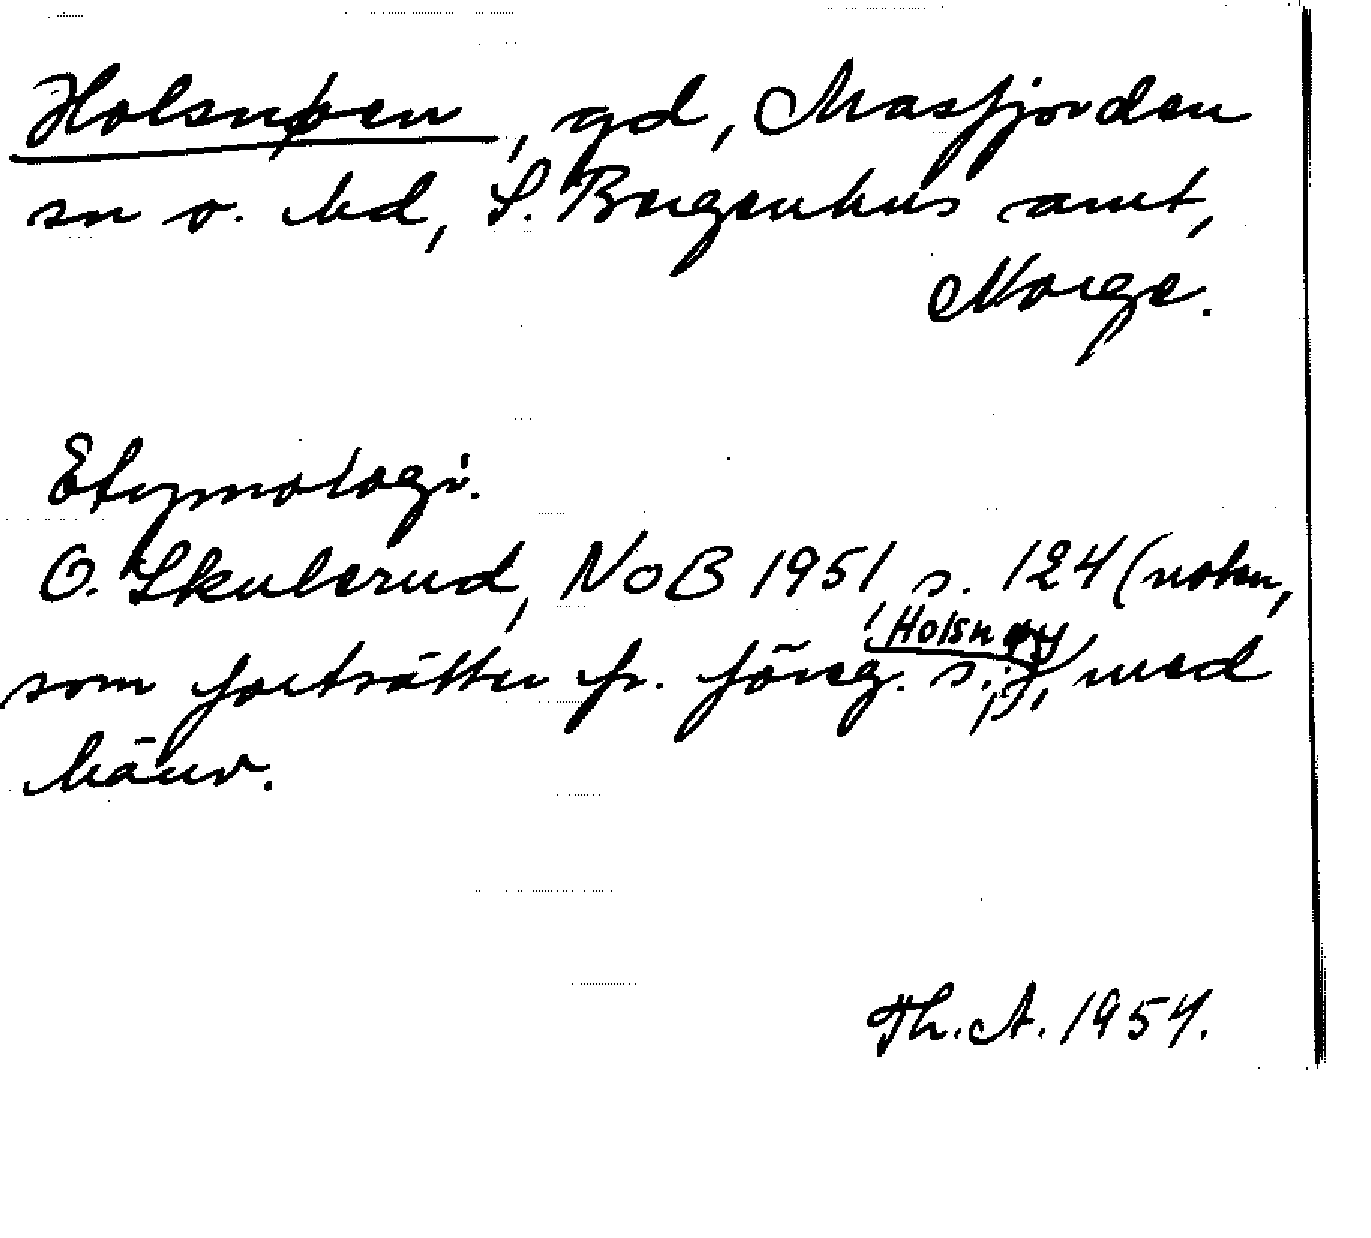 Holsnøen, gd, Masfjorden
sn o. hd, S. Bergenhus amt,
Norge.
Etymologi.
O. Skulerud, NoB 1951 s. 124 (noten,
Holsnøy
som fortsätter fr. föreg. s.), med
hänv.
Th. A. 1954.